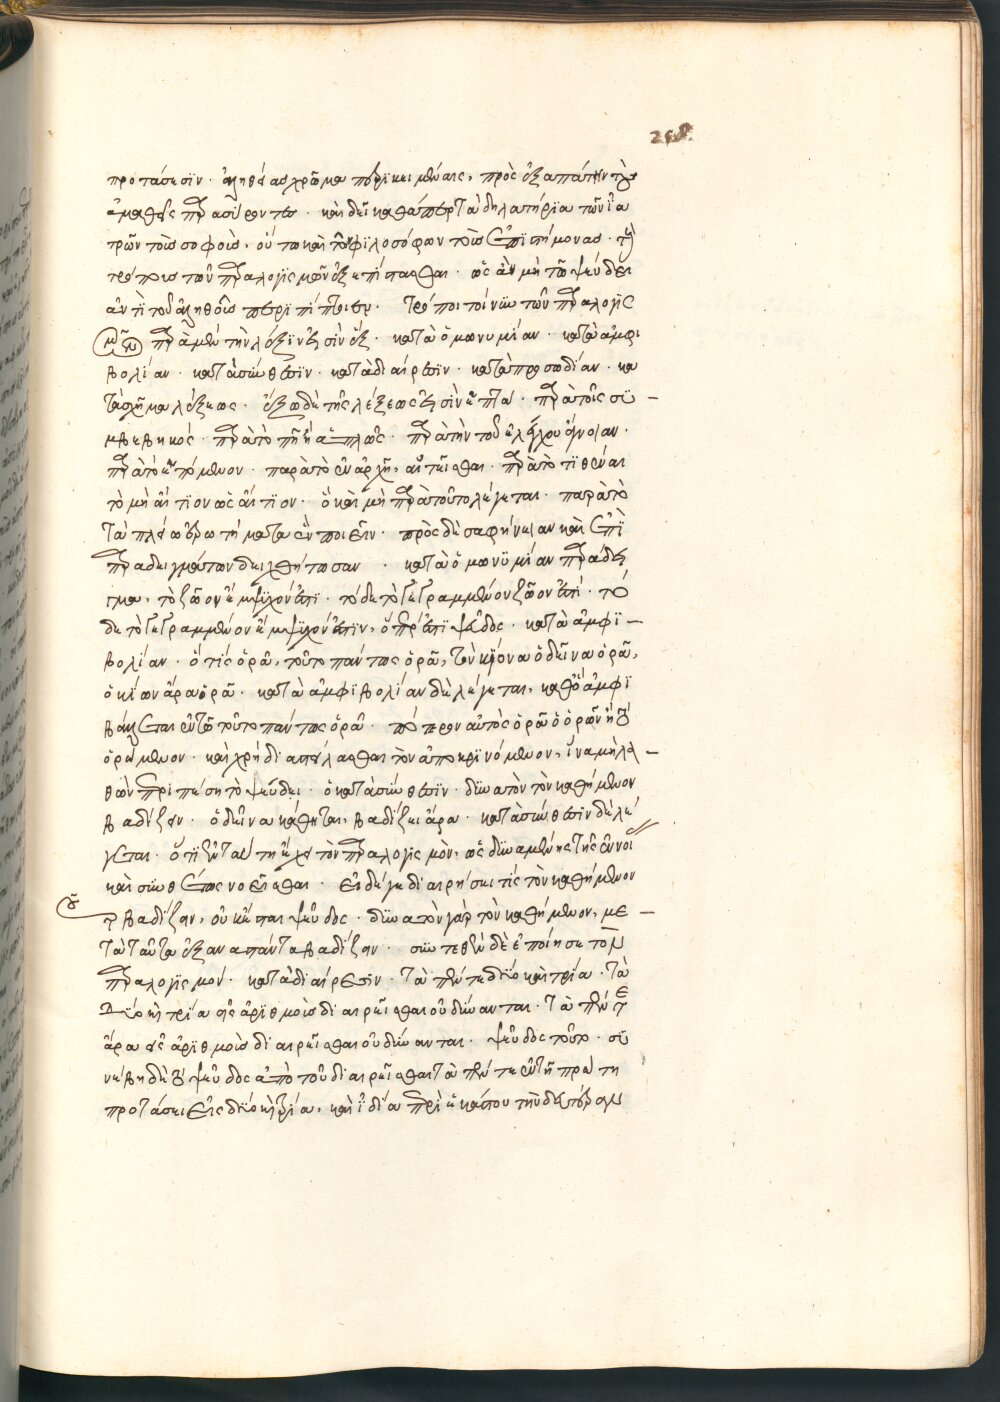 προτάσεσιν · ἀληθέσι χρῶμα περικειμένοις, πρὸς ἐξαπάτην τοὺς
ἀμαθεῖς παρασύροντες · καὶ δεῖ καθάπερ τὰ δηλητήρια τῶν ἰα
τρῶν τοῖς σοφοῖς, οὕτω καὶ τῶν φιλοσόφων τοῖς ἐπιστήμονας · τοὺς
τρόποις τῶν παραλογισμῶν ἐξεπίστασθαι · ὡς ἂν μὴ τῶ ψεύδει
ἀντὶ τοῦ ἀληθοῦς περιπίπτειεν · τρόποι τοίνυν τῶν παραλογισ
μῶν παρὰ μὲν τὴν λέξιν εἰσὶν ἕξ · κατὰ ὁμωνυμίαν · κατὰ ἀμφι
βολίαν · κατὰ σύνθεσιν · κατὰ διαίρεσιν · κατὰ προσωδίαν · κα
τὰ σχῆμα λέξεως · ἔξω δὲ τῆς λέξεως εἰσὶν ἑπτά · παρὰ τοῖς συ
μβεβηκός · παρὰ τὸ πῆ ἢ ἁπλῶς · παρὰ τὴν τοῦ ἐλέγχου ἄγνοιαν ·
παρὰ τὸ ἑπόμενον · παρὰ τὸ ἐν ἀρχῇ, αἰτεῖσθαι · παρὰ τὸ τιθέναι
τὸ μὴ αἴτιον ὡς αἴτιον · ὃ καὶ μὴ παρὰ τοῦτο λέγεται · παρὰ τὸ
τὰ πλείω ἐρωτήματα ἓν ποιεῖν · πρὸς δὲ σαφήνειαν καὶ ἐπὶ
παραδειγμάτων δειχθήτωσαν · κατὰ ὁμωνυμίαν παράδει
γμα, τὸ ζῶον ἔμψυχόν ἐστι · τὸ δὲ τὸ γεγραμμένον ζῶον ἐστί · τὸ
δὲ τὸ γεγραμμένον ἔμψυχόν ἐστιν, ὅπερ ἐστὶ ψεῦδος · κατὰ ἀμφι
βολίαν · ὅ τίς ὁρᾶ, τοῦτο πάντως ὁρᾶ, τὸν κίονα ὁ δεῖνα ὁρᾶ,
ὁ κίων ἄρα ὁρᾶ · κατὰ ἀμφιβολίαν δὲ λέγεται, καθὸ ἀμφι
βάλεται ἐν τῶ τοῦτο πάντως ὁρᾶ · πότερον αὐτὸς ὁρᾶ ὁ ὁρῶν ἢ τὸ
ὁρώμενον · καὶ χρὴ διαστείλασθαι τὸν ἀποκρινόμενον, ἵνα μὴ λα
θὼν περιπέση τὸ ψεύδει · ὁ κατὰ σύνθεσιν · δύναιτον τὸν καθήμενον
βαδίζειν · ὁ δεῖνα κάθηται, βαδίζει ἄρα · κατὰ σύνθεσιν δὲ λέ
γεται · ὅτι ἐνταύτη ἔχε τὸν παραλογισμὸν, ὡς δυναμένης τῆς ἐννοί
καὶ συνθέτως νοεῖσθαι · εἰ δέ γε διαιρήσει τίς τὸν καθήμενον
τὸ βαδίζειν, οὐκ ἔσται ψεῦδος · δυνατὸν γὰρ τὸν καθήμενον, με
τὰ ταῦτα ἐξαναστάντα βαδίζειν · συντεθὲν δὲ ἐποίησε τὸν
παραλογισμόν · κατὰ διαίρεσιν · τὰ πέντε δύο καὶ τρία · τὰ
δύο καὶ τρία εἰς ἀριθμοὶς διαιρεῖσθαι οὐ δύνανται · τὰ πέντε
ἄρα εἰς ἀριθμοὶς διαιρεῖσθαι οὐ δύνανται · ψεῦδος τοῦτο · συ
νέβη δὲ τὸ ψεῦδος ἀπὸ τοῦ διαιρεῖσθαι τὰ πέντε ἐν τῇ πρώτη
προτάσει εἰς δύο καὶ τρία, καὶ ἰδία περὶ ἑκάστου τὴν δευτέραν